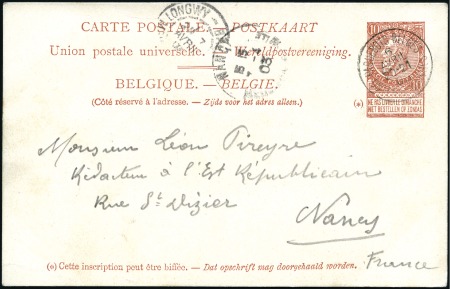 CARTE POSTALE POSTKAART
Union postale universelle. Wereldpostvereeniging.
BELGIQUE. — BELGIE.
(Côté réservé à l'adresse. — Zijds voor het adres alleen.)
10
NE PAS LIVRER LE DIMANCHE
NIET BESTELLEN OP ZONDAG
(*)
LONGWY
NANCY
03
Monsieur Léon Pireyre
Rédacteur à l'Est Républicain
Rue St Dizier
Nancy
France
(*) Cette inscription peut être biffée. — Dat opschrift mag doorgehaald worden.